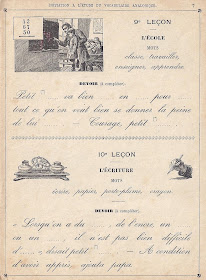 INITIATION A L'ÉTUDE DU VOCABULAIRE ANALOGIQUE. 7
12
07
50
9e LEÇON
L'ÉCOLE
MOTS
classe, travailler,
enseigner, apprendre.
DEVOIR (à compléter).
Petit va bien en pour
tout ce qu'on veut bien se donner la peine
de lui Courage, petit
10e LEÇON
L'ÉCRITURE
MOTS
écrire, papier, porte-plume, crayon
DEVOIR (à compléter).
« Lorsqu'on a du de l'encre, un
ou un il n'est pas bien difficile
d' » disait petit — A condition
d'avoir appris, ajouta papa.